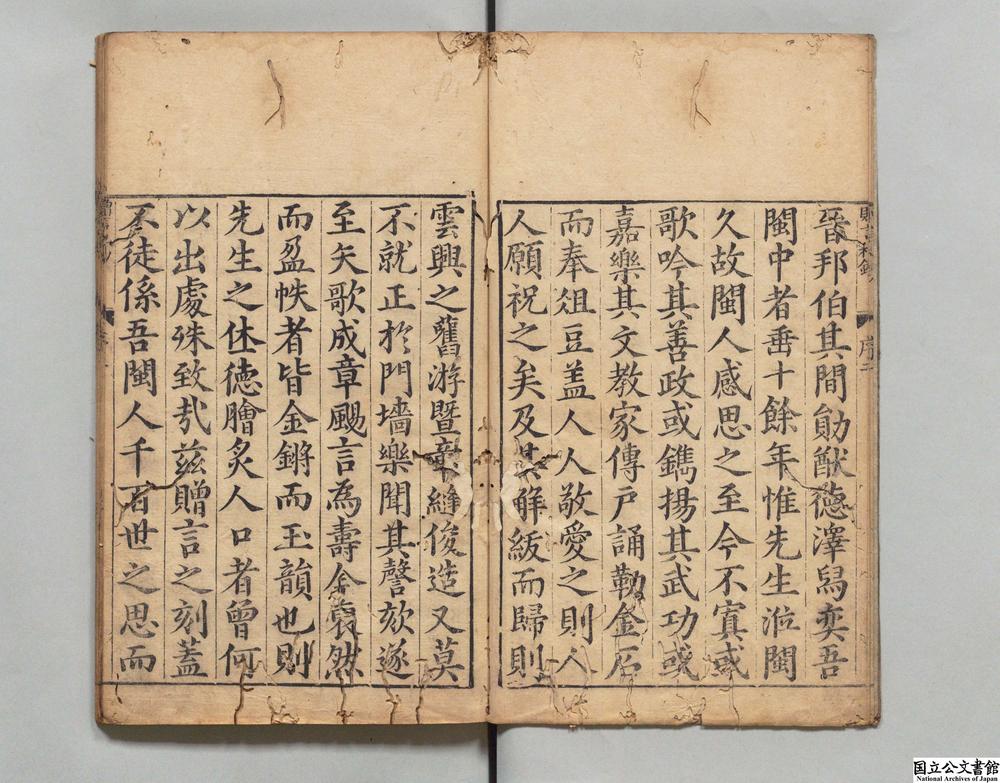 晉邦伯其間勛猷德澤舄奕吾
閩中者垂十餘年惟先生涖閩
久故閩人感思之至今不寘或
歌吟其善政或鐫揚其武功或
嘉樂其文教家傳戶誦勒金石
而奉俎豆盖人人敬愛之則人
人願祝之矣及其解紱而歸則
雲興之舊游暨章縫俊造又莫
不就正於門墻樂聞其謦欬遂
至矢歌成章颺言為壽僉裒然
而盈帙者皆金鏘而玉韻也則
先生之休徳膾炙人口者曾何
以出處殊致㦲兹贈言之刻蓋
不徒係吾閩人千百世之思而
序二
国立公文書館
National Archives of Japan